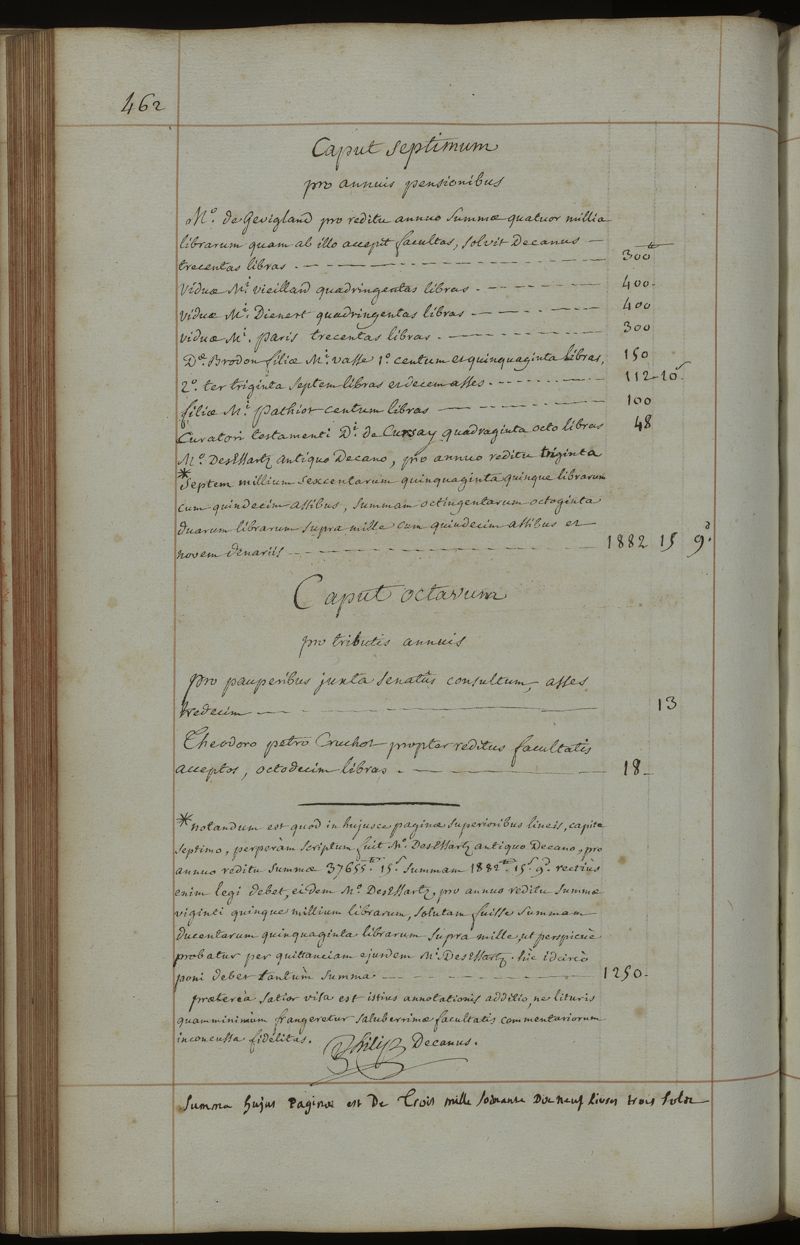 462
Caput septimum
pro annuis pensionibus
M.º de Gevigland pro reditu annuo summæ quatuor millia
librarum quam ab illo accepit facultas, solvit Decanus —
trecentas libras. — 300 ₶
Viduæ M.i Vieilland quadringentas libras. — 400.
viduæ M.i Dienert quadringentas libras — 400
viduæ M.i. paris trecentas libras. — 300
D.æ Brodon filiæ M.i Vasse 1.º centum et quinquaginta libras, 150
2.º ter triginta septem libras et decem asses. — 112-10 s
filiæ M.i pathiot centum libras — 100
Curatori testamenti D.i de Cursay quadraginta octo libras 48
M.º DesEssartz antiquo Decano, pro annuo reditu triginta
*Septem millium sexcentarum quinquaginta quinque librarum
cum quindecim assibus, summam octingentarum octoginta
duarum librarum supra mille cum quindecim assibus et
novem denariis — 1882 15 9 d.
Caput octavum
pro tributis annuis
pro pauperibus juxta senatûs consultum, asses
tredecim — 13
Theodoro petro Cruchot propter reditus facultatis
acceptos, octodecim libras. — 18-
*notandum est quod in hujusce paginæ superioribus lineis, capite
septimo, perperàm scriptum fuit M.º DesEssartz antiquo Decano, pro
annuo reditu summæ 37655 ₶. 15 s. summam 1882 ₶. 15 s. 9 d. rectiùs
enim legi debet, eidem M.º DesEssartz, pro annuo reditu summæ
viginti quinque millium librarum, solutam fuisse summam
ducentarum quinquaginta librarum supra mille, ut perspicuè
probatur per quittanciam ejusdem M.i DesEssartz. hîc idcircò
poni debet tantùm summa — 1250-
prætereà satior visa est istius annotationis additio, ne lituris
quam minimùm frangeretur saluberrimæ facultatis commentariorum
inconcussa fidelitas. Philip Decanus.
Summa hujus Paginæ est De Trois mille soixante Dixneuf livres trois sols